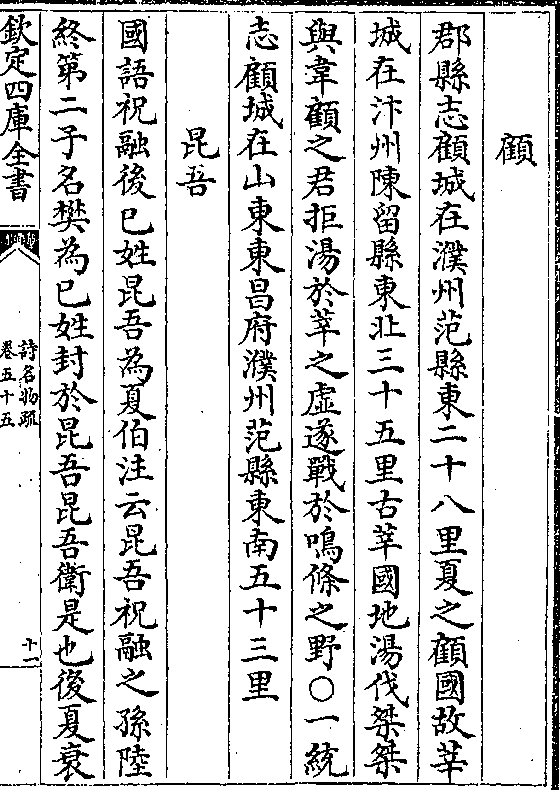 顧
郡縣志顧城在濮州范縣東二十八里夏之顧國故莘
城在汴州陳留縣東北三十五里古莘國地湯伐桀桀
與韋顧之君拒湯於莘之虛遂戰於鳴條之野○一統
志顧城在山東東昌府濮州范縣東南五十三里
昆吾
國語祝融後已姓昆吾為夏伯注云昆吾祝融之孫陸
終第二子名樊為已姓封於昆吾昆吾衛是也後夏衰
欽定四庫全書
詩名物疏
卷五十五
十一